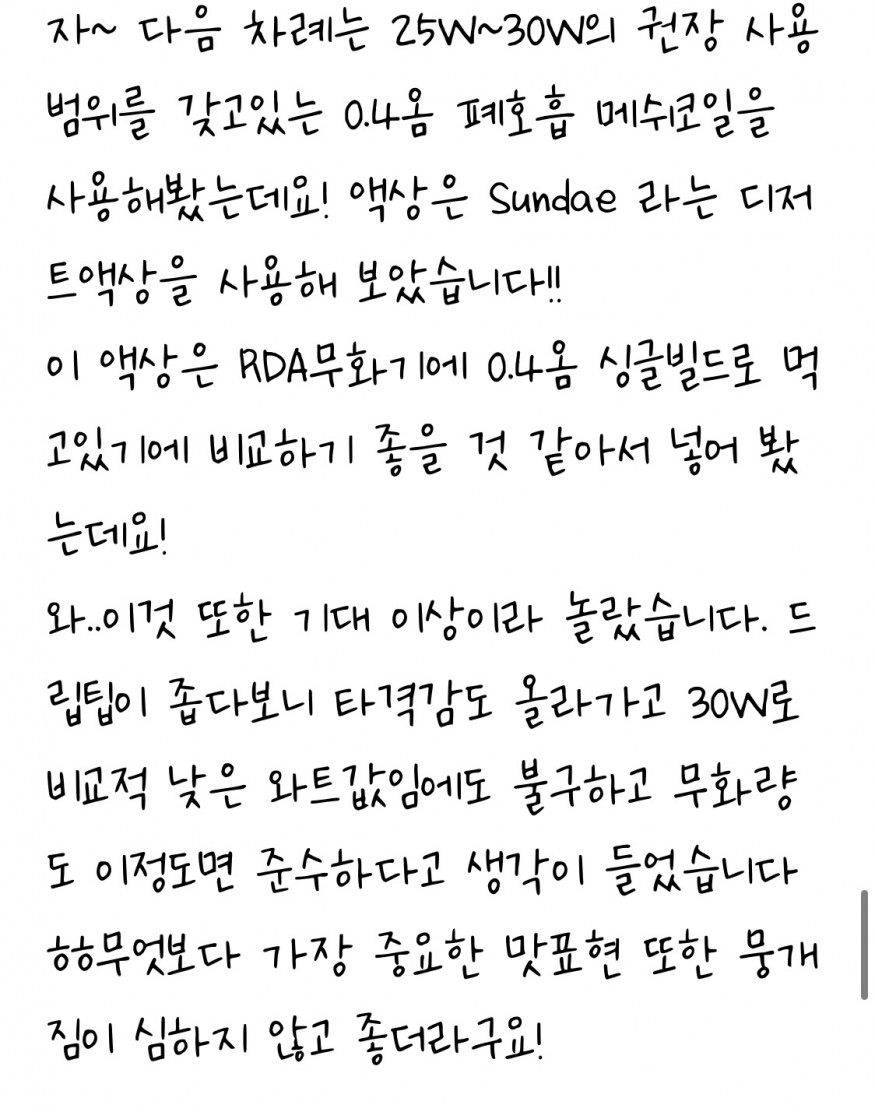 자~ 다음 차례는 25W~30W의 권장 사용
범위를 갖고있는 0.4옴 폐호흡 메쉬코일을
사용해봤는데요! 액상은 Sundae 라는 디저
트액상을 사용해 보았습니다!!
이 액상은 RDA무화기에 0.4옴 싱글빌드로 먹
고있기에 비교하기 좋을 것 같아서 넣어 봤
는데요!
와..이것 또한 기대 이상이라 놀랐습니다. 드
립팁이 좁다보니 타격감도 올라가고 30W로
비교적 낮은 와트값임에도 불구하고 무화량
도 이정도면 준수하다고 생각이 들었습니다
ㅎㅎ무엇보다 가장 중요한 맛표현 또한 뭉개
짐이 심하지 않고 좋더라구요!